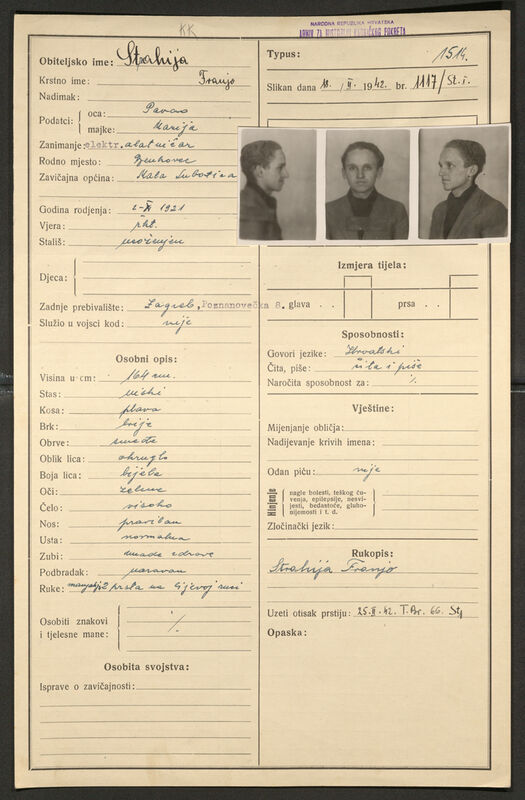 KK
NARODNA REPUBLIKA HRVATSKA
ARHIV ZA HISTORIJU RADNIČKOG POKRETA
Obiteljsko ime: Strahija
Krstno ime: Franjo
Nadimak:
Podatci: oca: Pavao
majke: Marija
Zanimanje: elektr. alatničar
Rodno mjesto:
Zavičajna općina: Mala Subotica
Godina rodjenja: 2-XI 1921
Vjera: rkt.
Stališ: neoženjen
Djeca:
Zadnje prebivalište: Zagreb, Poznanovečka 8.
Služio u vojsci kod: nije
Osobni opis:
Visina u cm: 164 cm.
Stas: niski
Kosa: plava
Brk: brije
Obrve: smeđe
Oblik lica: okruglo
Boja lica: bijela
Oči: zelene
Čelo: visoko
Nos: pravilan
Usta: normalna
Zubi: zdrave
Podbradak: naravan
Ruke: 2 prsta na lijevoj ruci
Osobiti znakovi i tjelesne mane: ·/.
Osobita svojstva:
Isprave o zavičajnosti:
Typus: 1514.
Slikan dana 18. II. 1942. br. 1117/St.i.
Izmjera tijela:
glava . . prsa . .
Sposobnosti:
Govori jezike: Hrvatski
Čita, piše: čita i piše
Naročita sposobnost za: ·/.
Vještine:
Mijenjanje obličja:
Nadijevanje krivih imena:
Odan piću: nije
Hinjenje
nagle bolesti, teškog ču-
venja, epilepsije, nesvi-
jesti, bedastoće, gluho-
nijemosti i t. d.
Zločinački jezik:
Rukopis:
Strahija Franjo
Uzeti otisak prstiju: 25.II.42. T.Br. 66. Stj
Opaska: